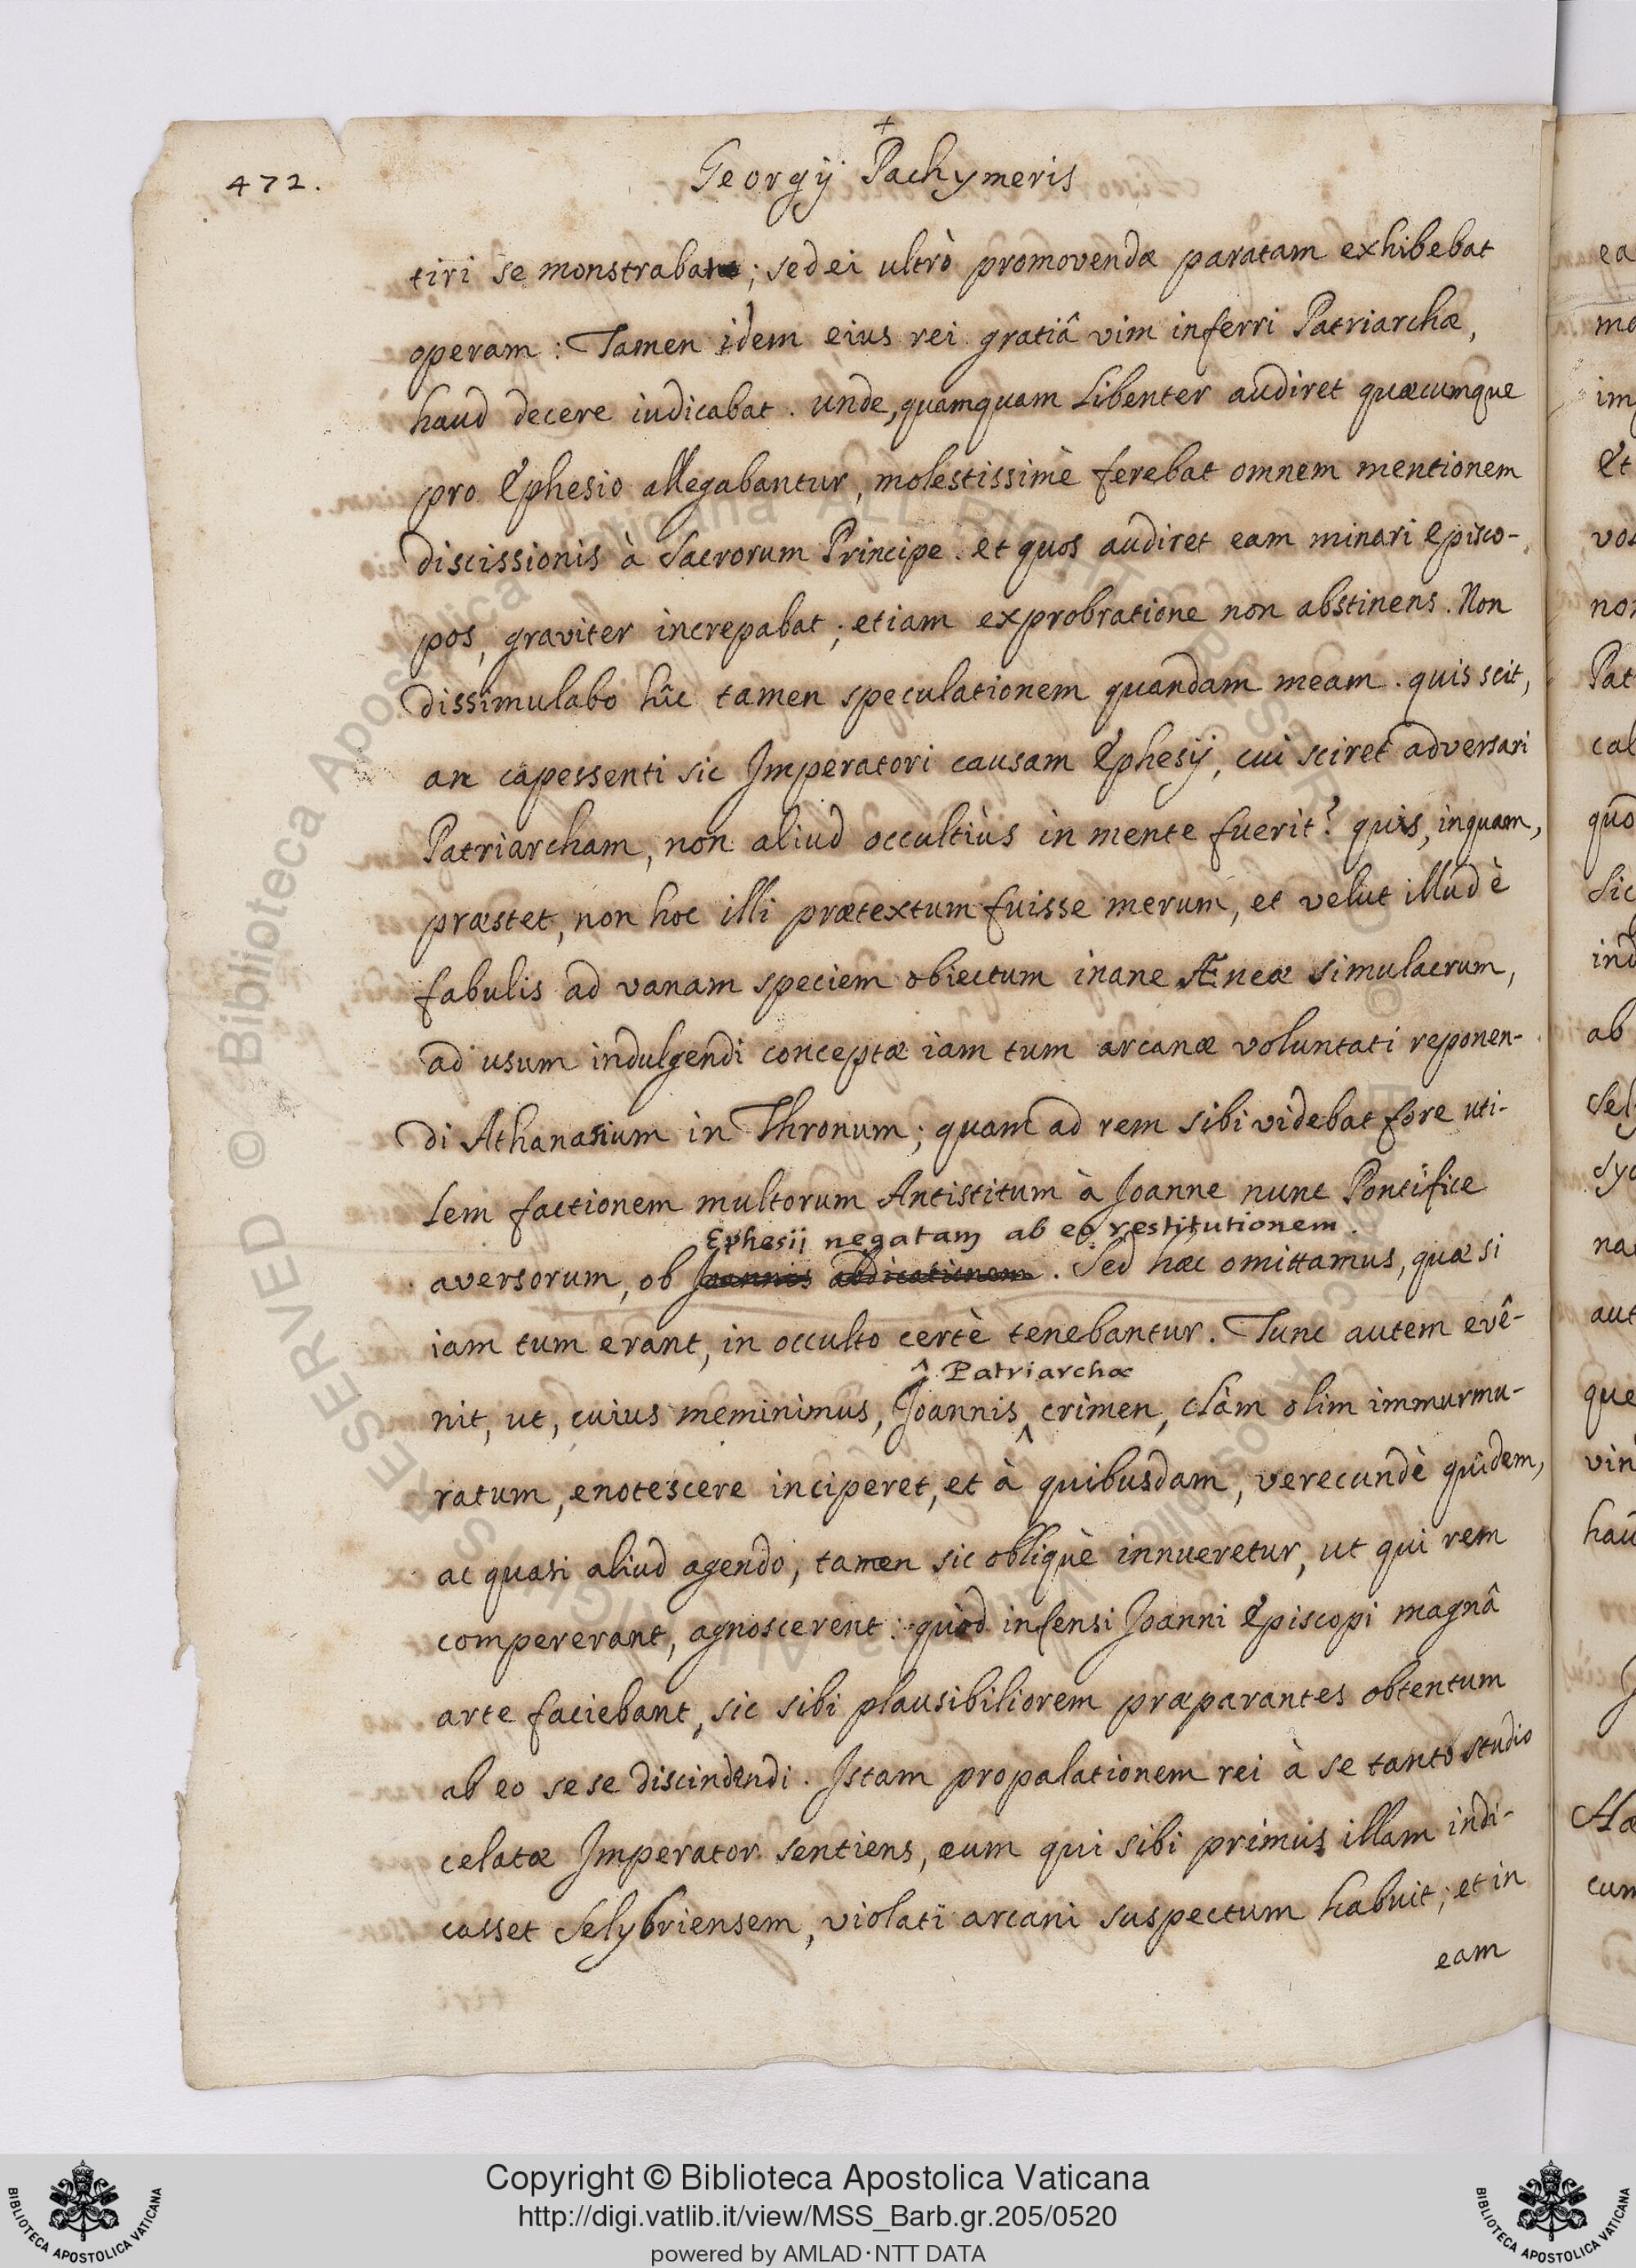 472.
+
Georgij Pachymeris
tiri se monstrabat; sed ei ultrò promovendæ paratam exhibebat
operam: Tamen idem eius rei gratiâ vim inferri Patriarchæ,
haud decere iudicabat. unde, quamquam libenter audiret quæcumque
pro Ephesio allegabantur, molestissimè ferebat omnem mentionem
discissionis à Sacrorum Principe. et quos audiret eam minari Episco-
pos, graviter increpabat; etiam exprobratione non abstinens. Non
dissimulabo hîc tamen speculationem quandam meam. quis scit,
an capessenti sic Imperatori causam Ephesij, cui sciret adversari
Patriarcham, non aliud occultiùs in mente fuerit? quis, inquam,
præstet, non hoc illi prætextum fuisse merum, et velut illud è
fabulis ad vanam speciem obiectum inane Æneæ simulacrum,
ad usum indulgendi conceptæ iam tum arcanæ voluntati reponen-
di Athanasium in Thronum; quam ad rem sibi videbat fore uti-
lem factionem multorum Antistitum à Joanne nunc Pontifice
Ephesii negatam ab eo restitutionem.
aversorum, ob Joannis abdicationem. Sed hæc omittamus, quæ si
iam tum erant, in occulto certè tenebantur. Tunc autem evê-
^ Patriarchæ
nit, ut, cuius meminimus, Joannis ^ crimen, clàm olim immurmu-
ratum, enotescere inciperet, et à quibusdam, verecundè quidem,
ac quasi aliud agendo, tamen sic obliquè innueretur, ut qui rem
compererant, agnoscerent: quod infensi Joanni Episcopi magnâ
arte faciebant, sic sibi plausibiliorem præparantes obtentum
ab eo sese discindendi. Istam propalationem rei à se tanto studio
celatæ Imperator sentiens, eum qui sibi primus illam indi-
casset Selybriensem, violati arcani suspectum habuit; et in
eam
ea
Et
Pat
cal
quo
ab
aut
que
vin
cum
Copyright © Biblioteca Apostolica Vaticana
http://digi.vatlib.it/view/MSS_Barb.gr.205/0520
powered by AMLAD·NTT DATA
BIBLIOTECA APOSTOLICA VATICANA
BIBLIOTECA APOSTOLICA VATICANA